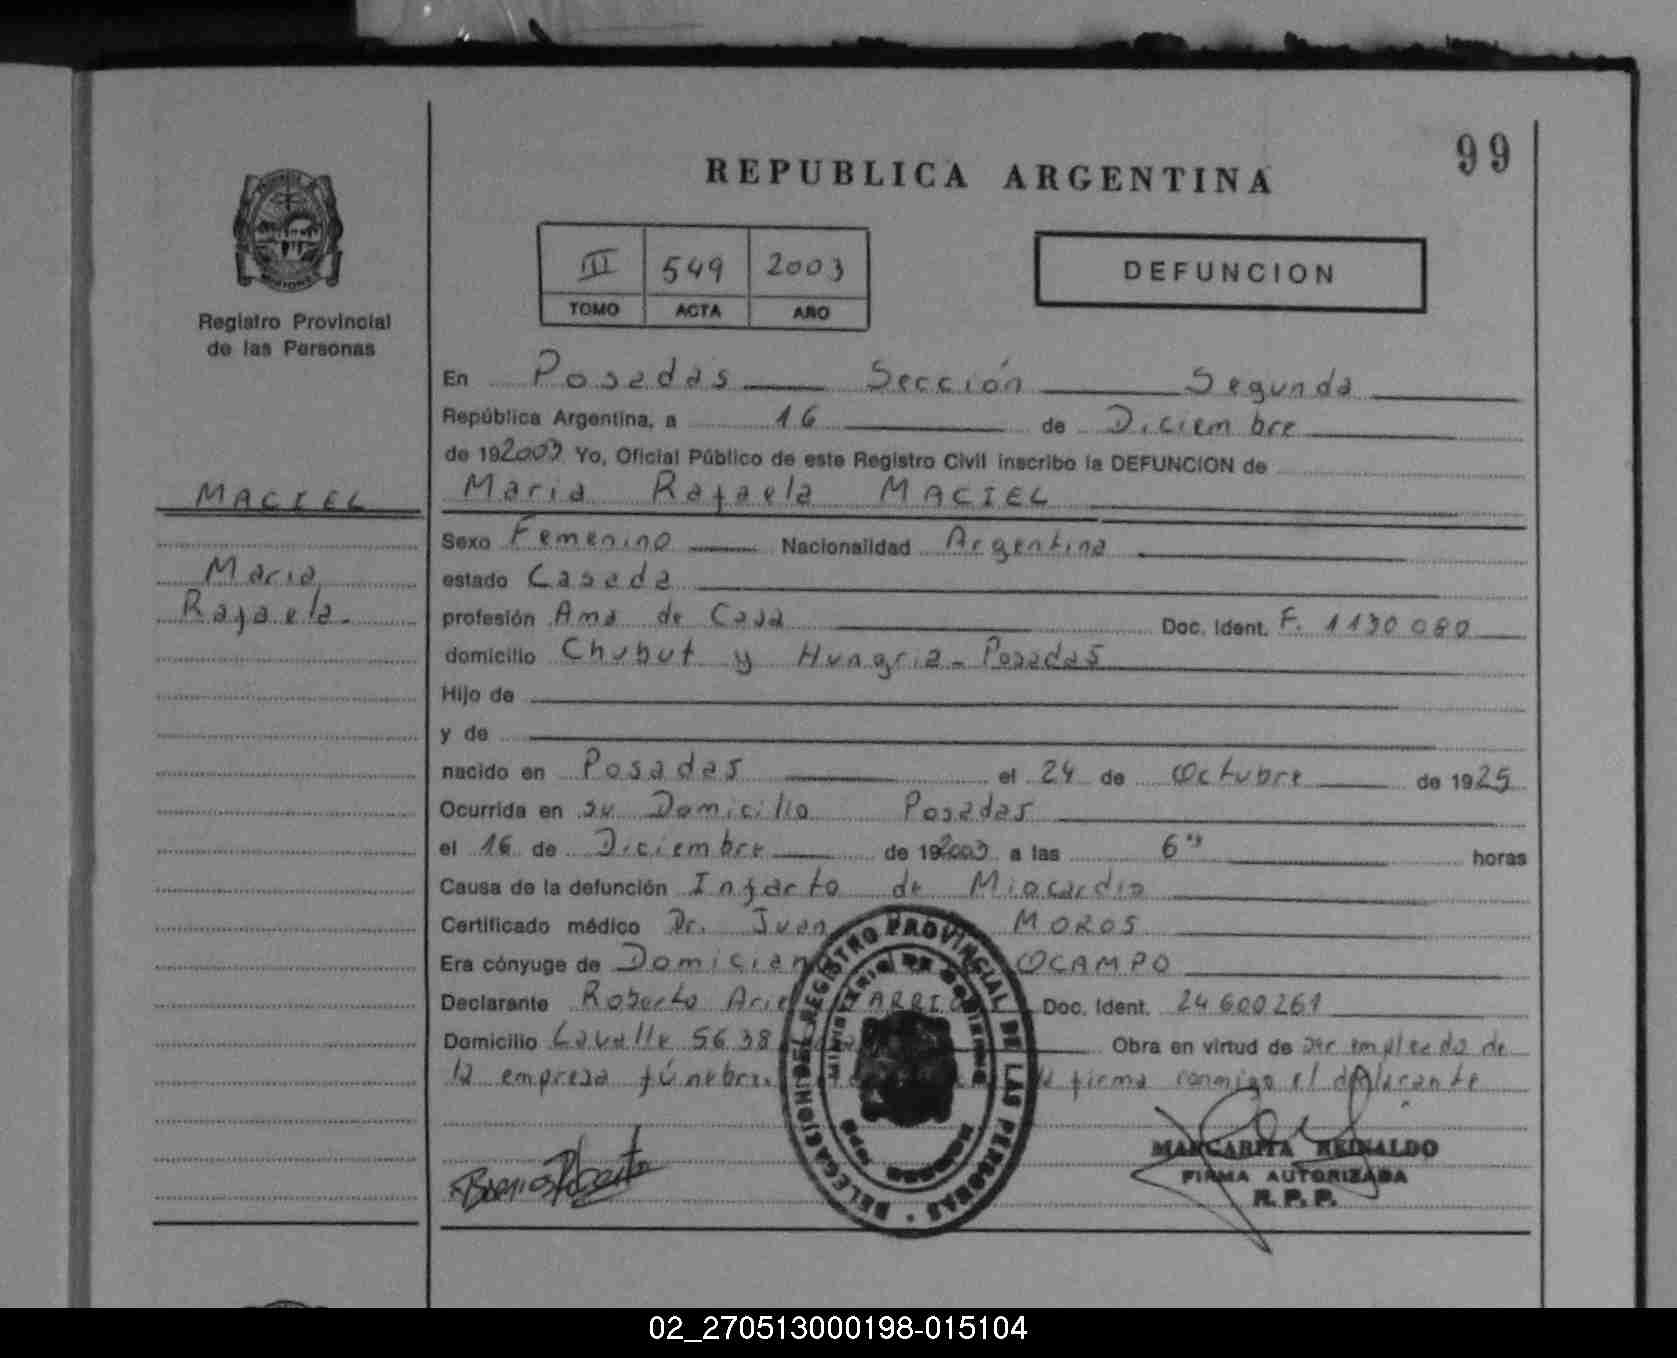 99
REPUBLICA ARGENTINA
III 549 2003
TOMO ACTA AÑO
DEFUNCION
Registro Provincial
de las Personas
MACIEL
Maria
Rafaela.
En Posadas Sección Segunda
República Argentina, a 16 de Diciembre
de 192003 Yo, Oficial Público de este Registro Civil inscribo la DEFUNCION de
Maria Rafaela MACIEL
Sexo Femenino Nacionalidad Argentina
estado Casada
profesión Ama de Casa Doc. Ident. F. 1130080
domicilio Chubut y Hungria - Posadas
Hijo de
y de
nacido en Posadas el 24 de Octubre de 1925
Ocurrida en su Domicilio Posadas
el 16 de Diciembre de 192003 a las 6 horas
Causa de la defunción Infarto de Miocardio
Certificado médico Dr. Juan MOROS
Era cónyuge de OCAMPO
Declarante Roberto Doc. Ident. 24600261
Domicilio Lavalle 5638 Obra en virtud de ser empleado de
la empresa fúnebre firma conmigo el declarante
DELEGACION DEL REGISTRO PROVINCIAL DE LAS PERSONAS
MINISTERIO DE GOBIERNO
MARGARITA REINALDO
FIRMA AUTORIZADA
R. P. P.
02_270513000198-015104